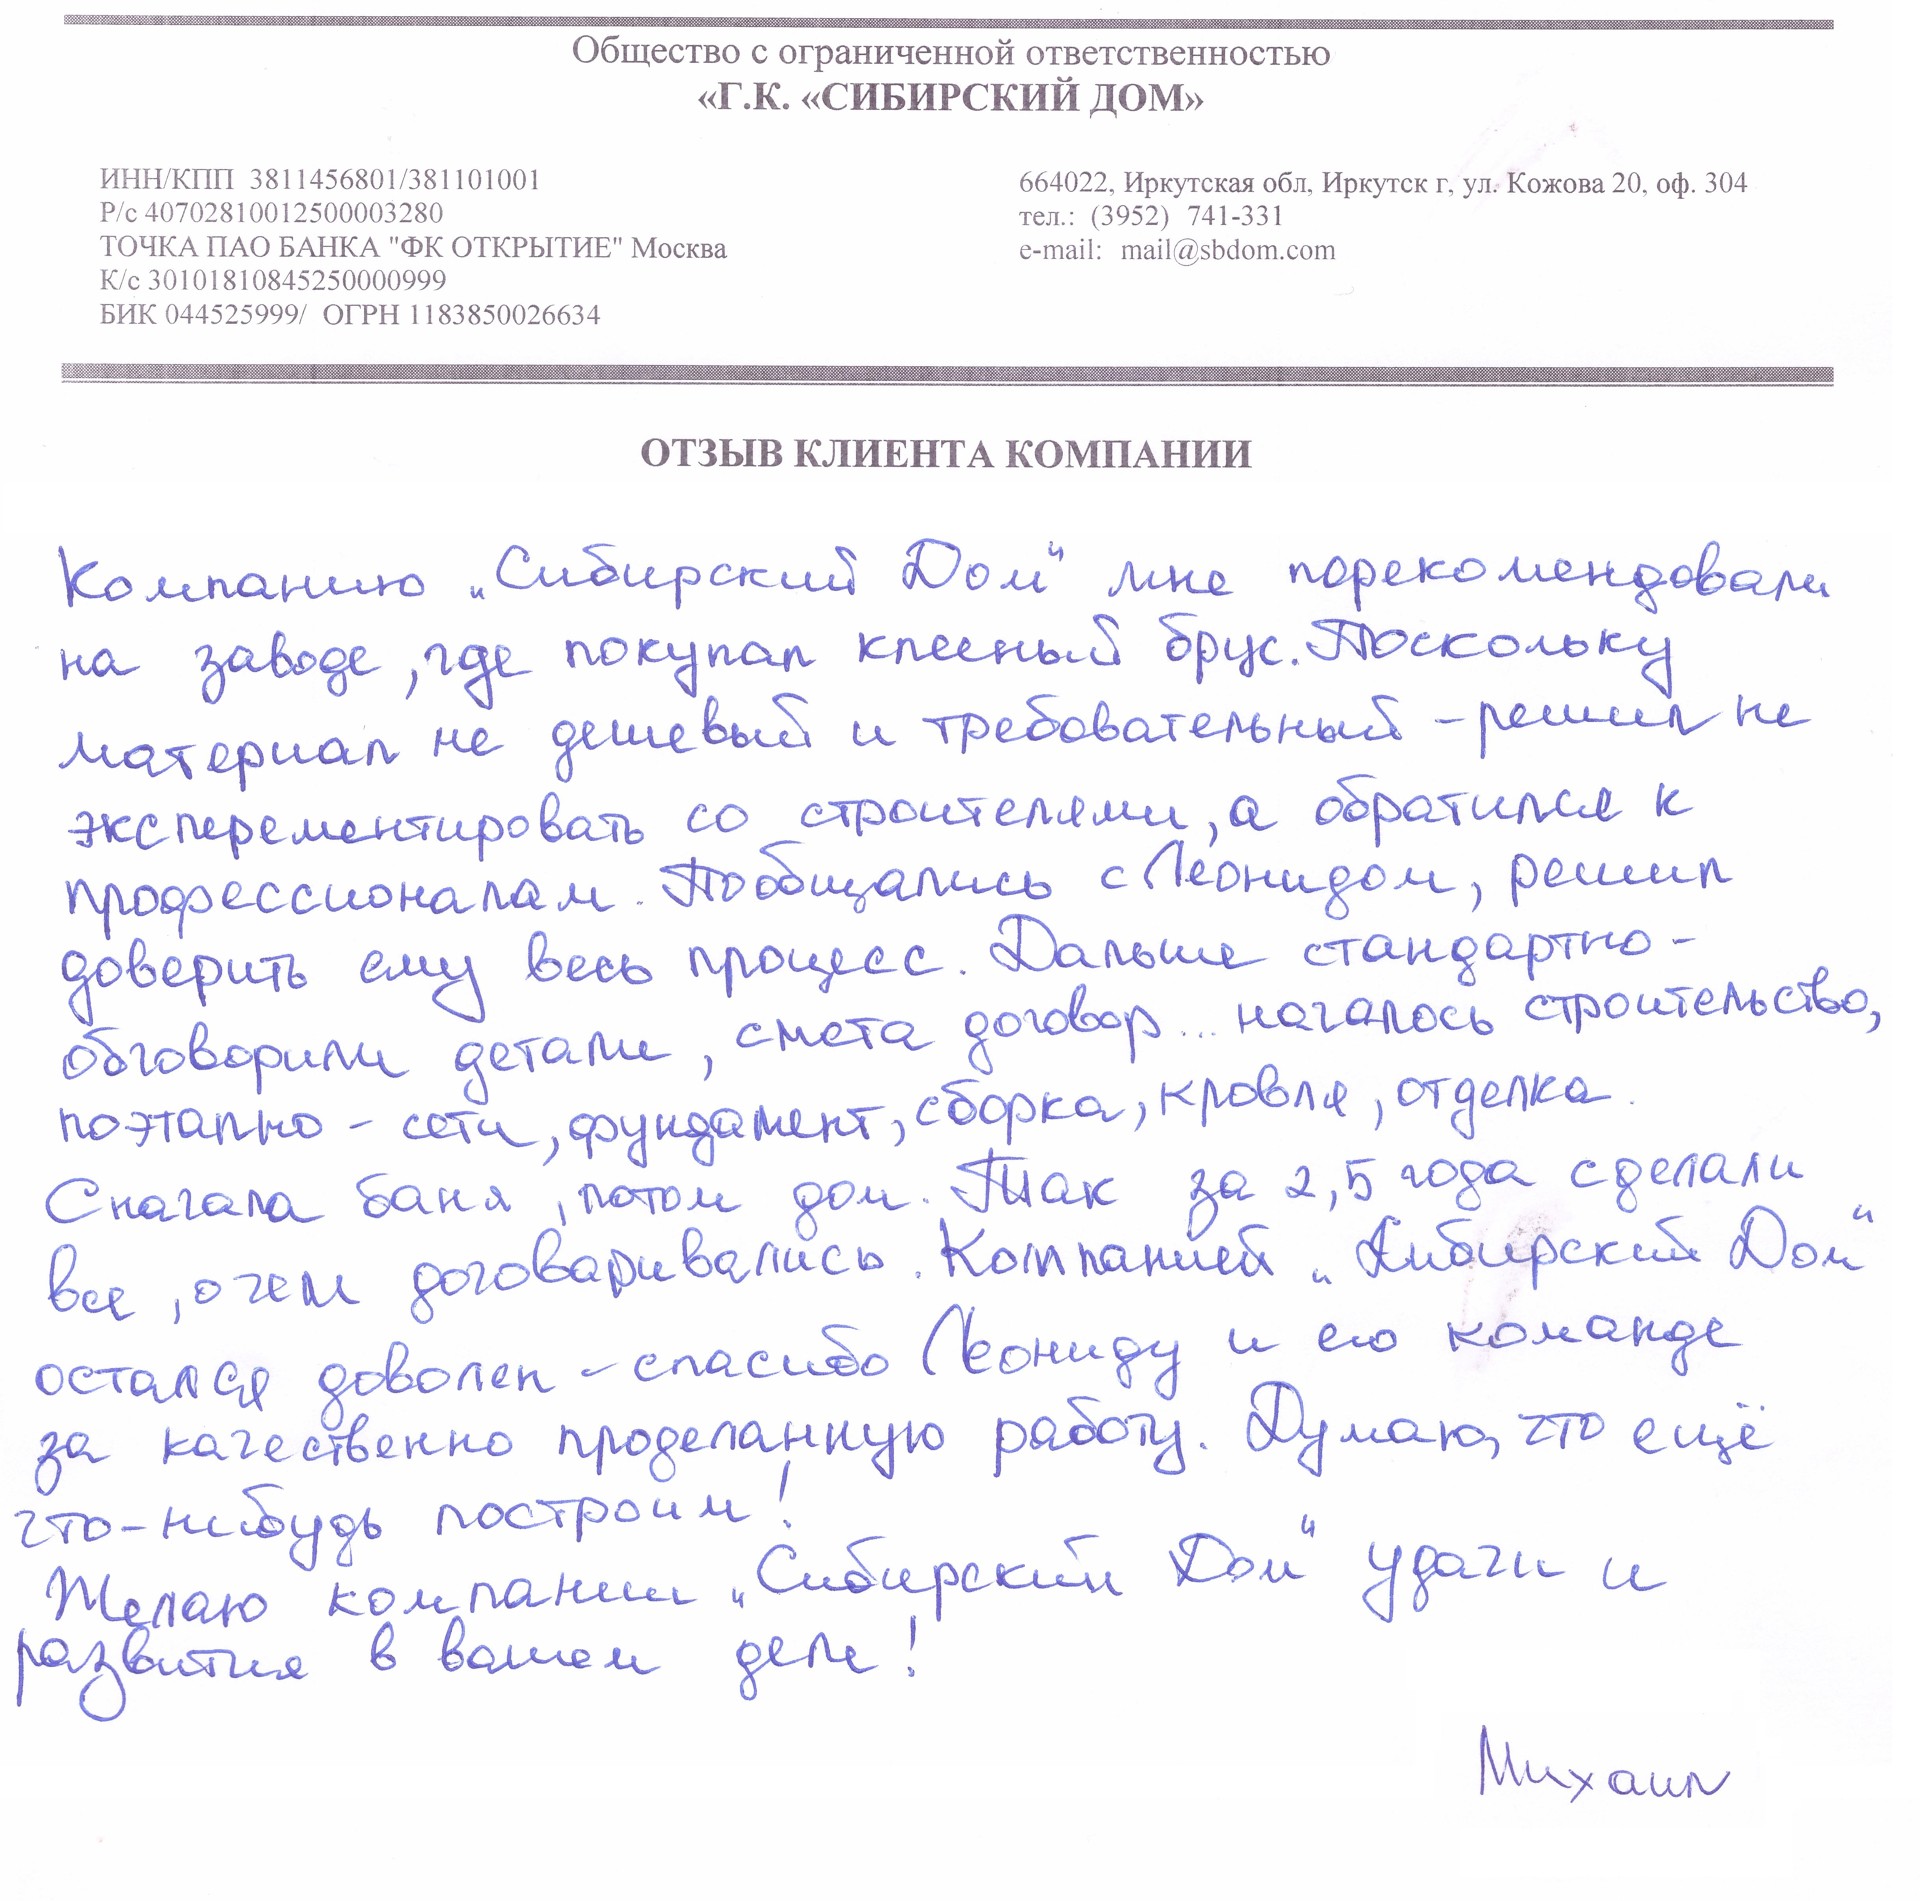 Общество с ограниченной ответственностью
«Г.К. «СИБИРСКИЙ ДОМ»
ИНН/КПП 3811456801/381101001
Р/с 40702810012500003280
ТОЧКА ПАО БАНКА "ФК ОТКРЫТИЕ" Москва
К/с 30101810845250000999
БИК 044525999/ ОГРН 1183850026634
664022, Иркутская обл, Иркутск г, ул. Кожова 20, оф. 304
тел.: (3952) 741-331
e-mail: mail@sbdom.com
ОТЗЫВ КЛИЕНТА КОМПАНИИ
Компанию „Сибирский Дом“ мне порекомендовали
на заводе, где покупал клееный брус. Поскольку
материал не дешевый и требовательный - решил не
эксперементировать со строителями, а обратился к
профессионалам. Пообщались с Леонидом, решил
доверить ему весь процесс. Дальше стандартно -
обговорили детали, смета договор... началось строительство,
поэтапно - сети, фундамент, сборка, кровля, отделка.
Сначала баня, потом дом. Так за 2,5 года сделали
все, о чем договаривались. Компанией „Сибирский Дом“
остался доволен - спасибо Леониду и его команде
за качественно проделанную работу. Думаю, что ещё
что-нибудь построим!
Желаю компании „Сибирский Дом“ удачи и
развития в вашем деле!
Михаил